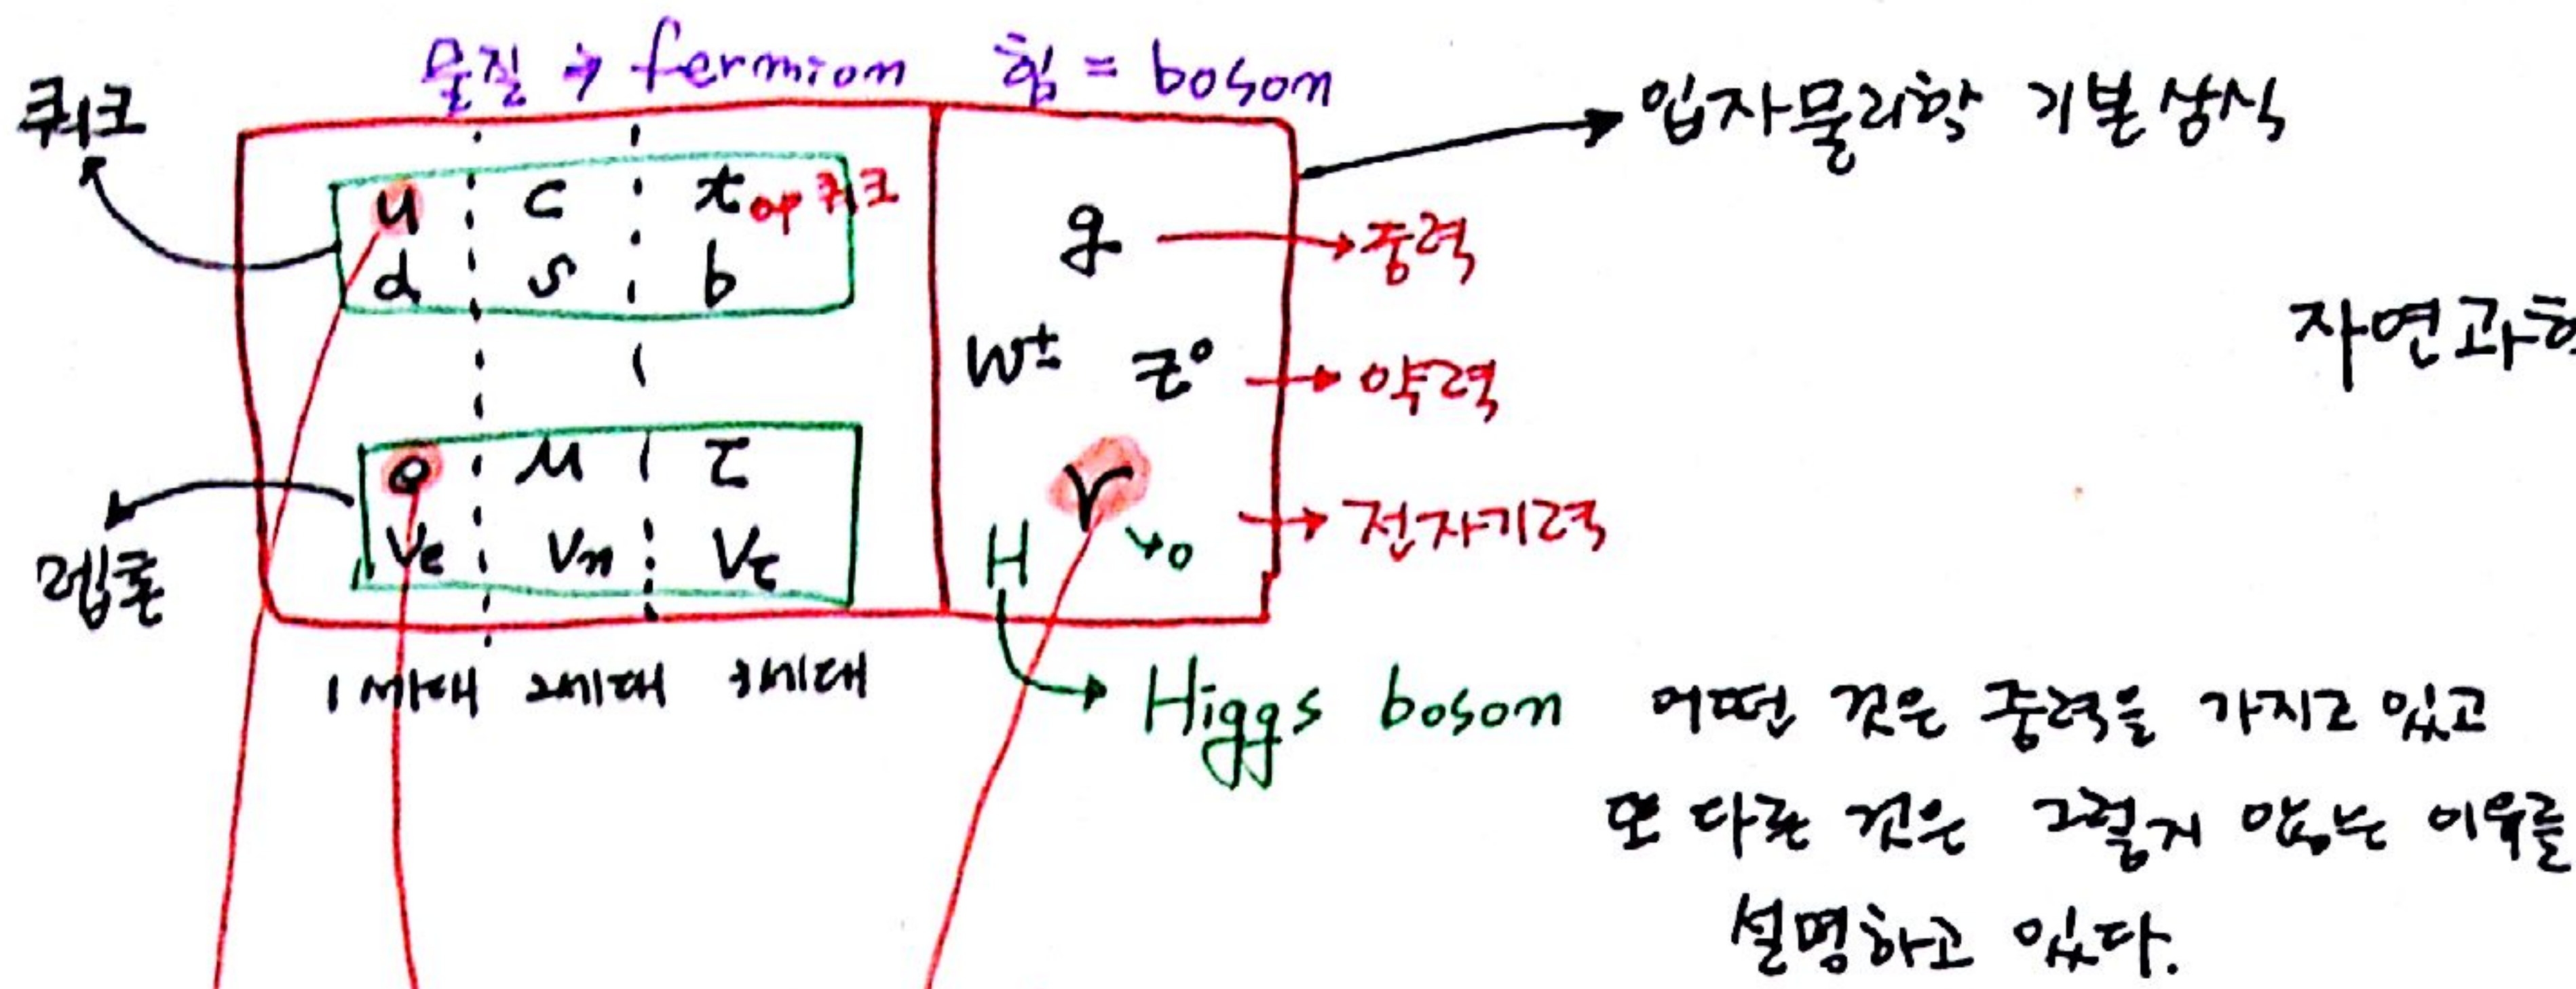 물질 → fermion 힘 = boson
쿼크
입자물리학 기본상식
u c top 쿼크
d s b
g → 중력
W± Z⁰ → 약력
자연과학
e μ τ
γ → 전자기력
νe νμ ντ
H → 0
렙톤
1세대 2세대 3세대
Higgs boson
어떤 것은 중력을 가지고 있고
또 다른 것은 그렇지 않는 이유를
설명하고 있다.